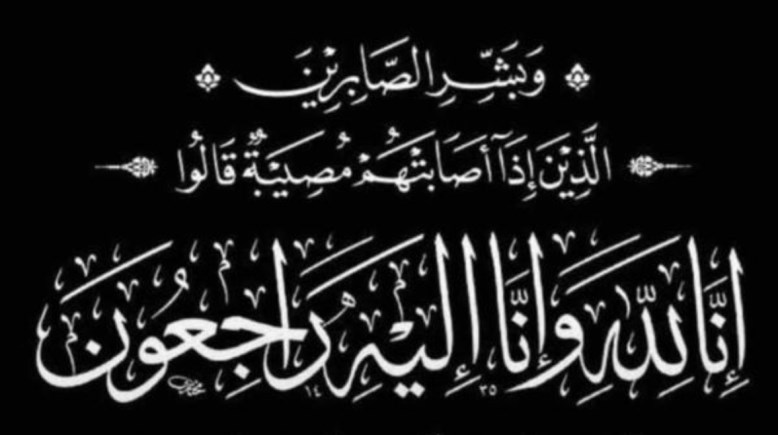 وَبَشِّرِ الصَّابِرِيْنَ
الَّذِيْنَ إِذَآ أَصَابَتْهُمْ مُصِيَبَةٌ قَالُوا
إِنَّا لِلّٰهِ وَإِنَّا إِلَيْهِ رَاجِعُونَ
١٤ ٣٥